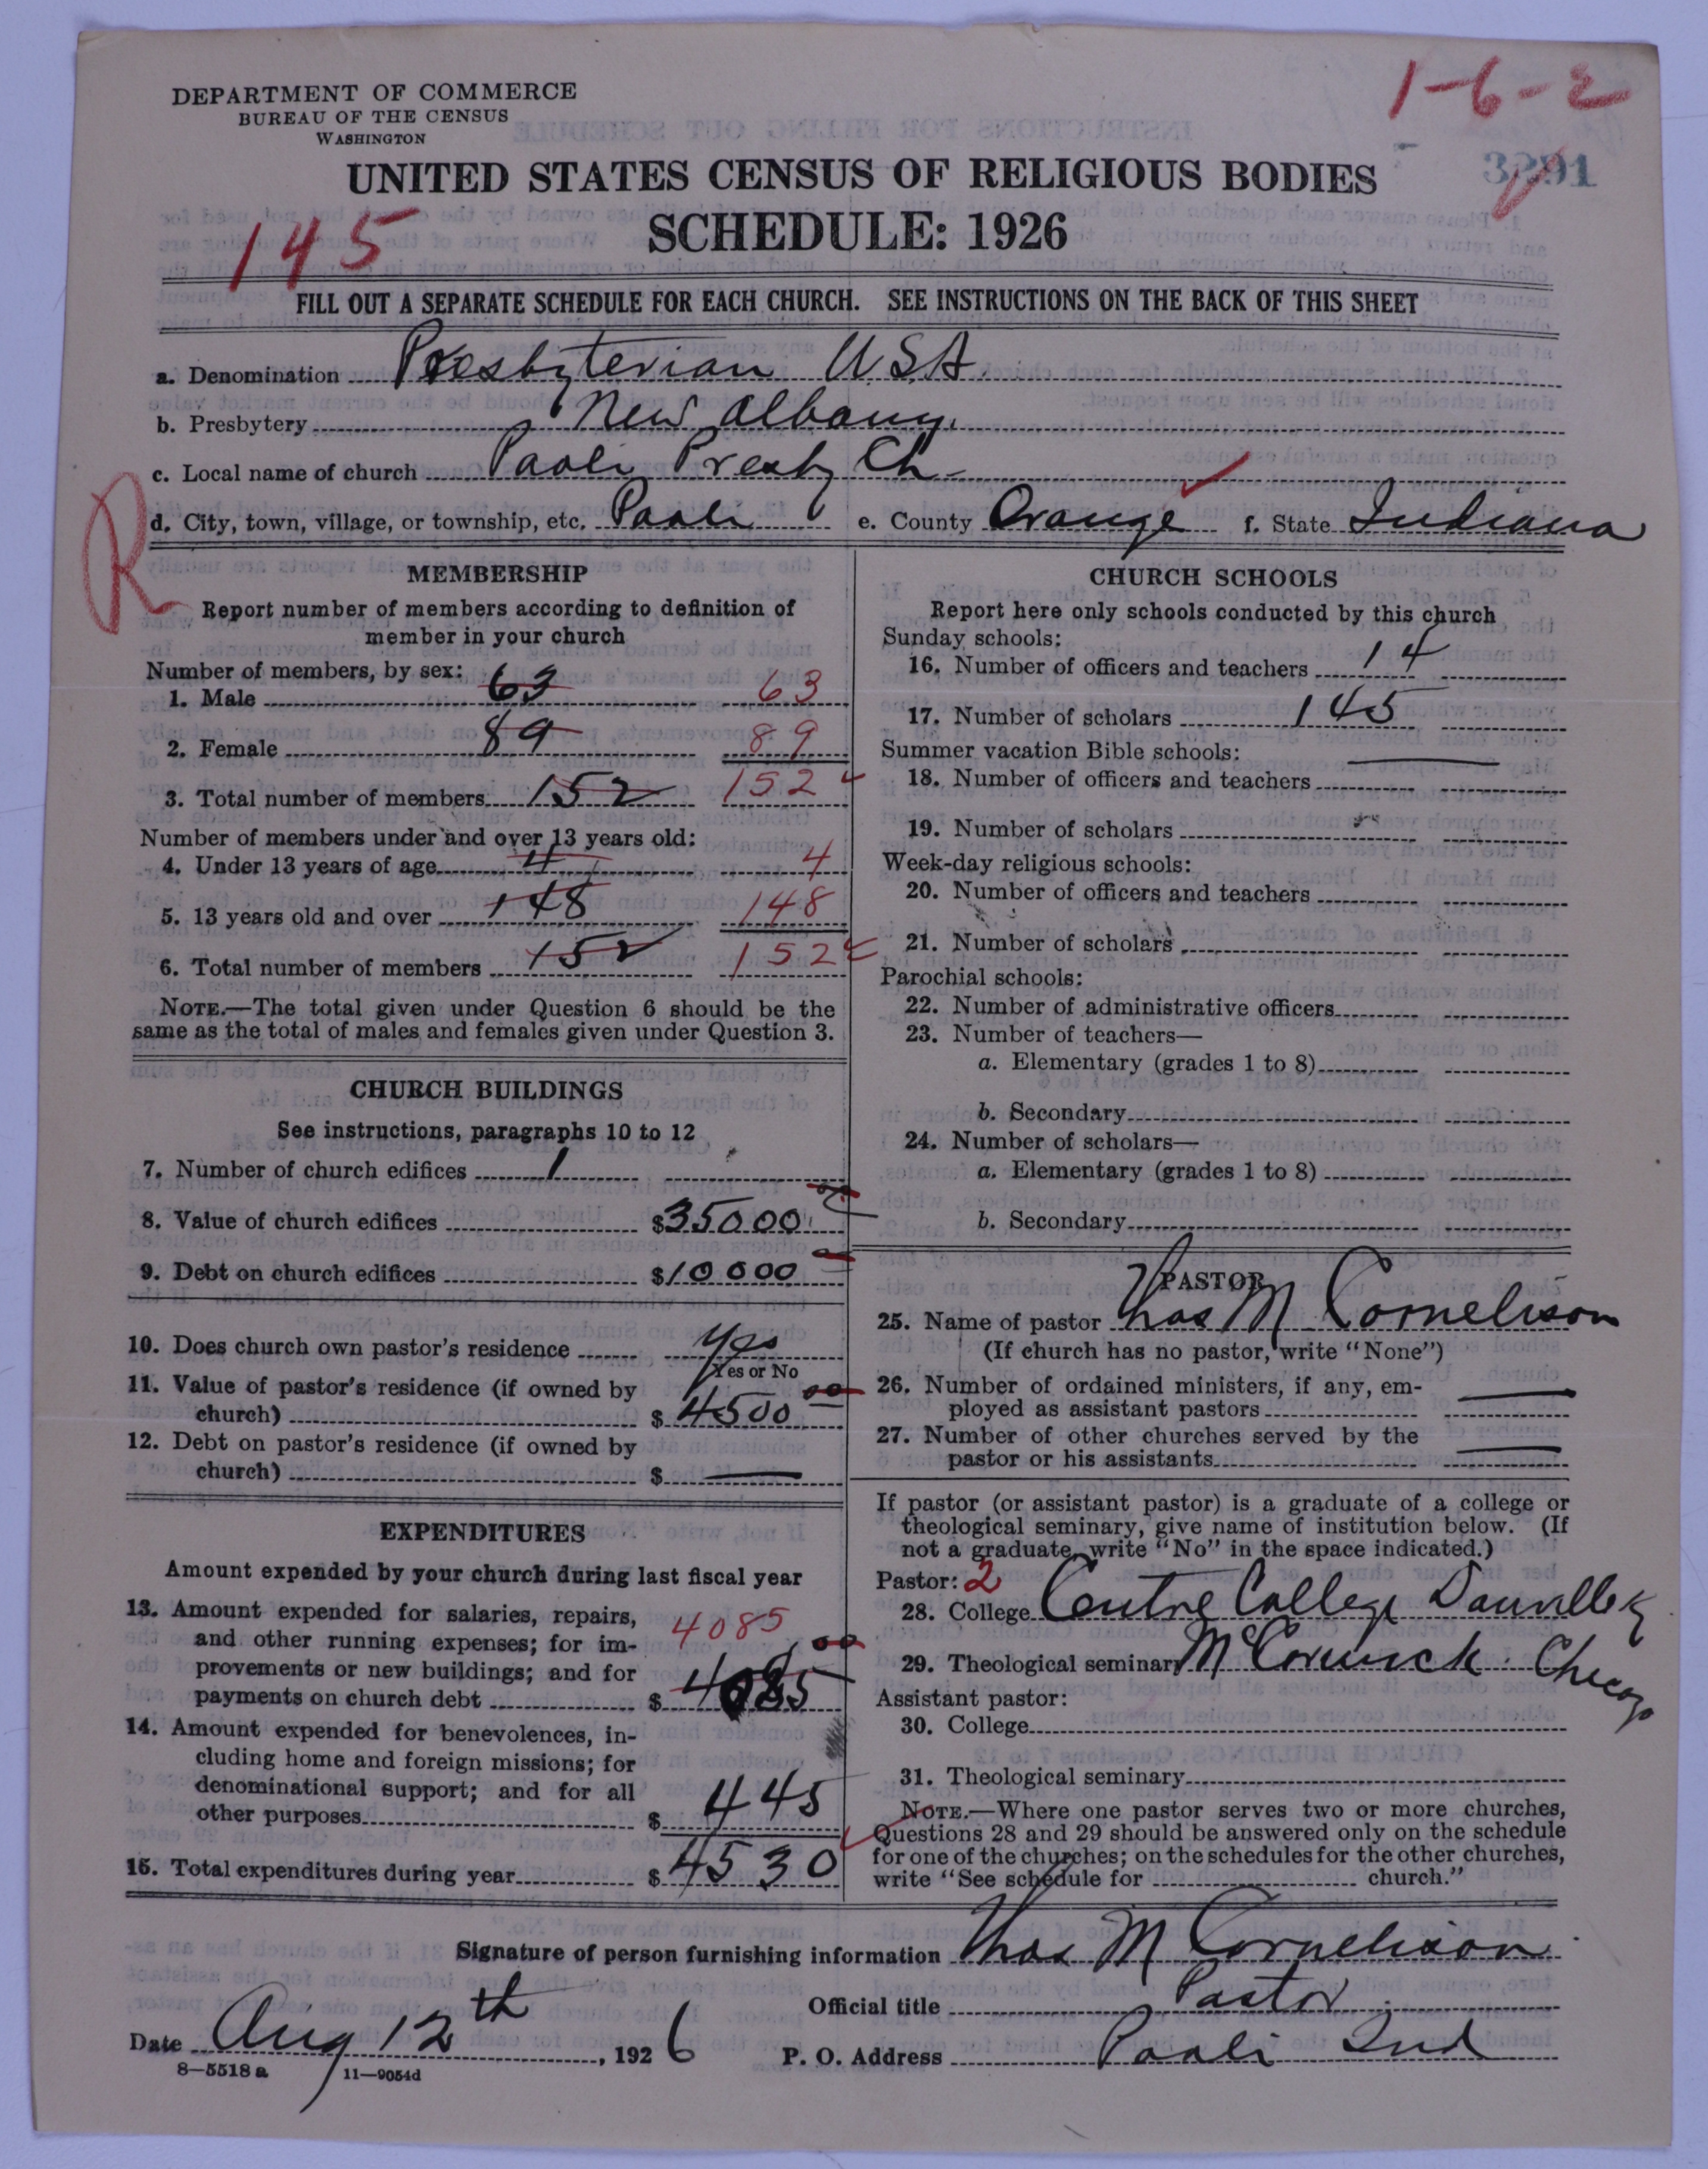 DEPARTMENT OF COMMERCE
BUREAU OF THE CENSUS
WASHINGTON
1-6-2
3291
UNITED STATES CENSUS OF RELIGIOUS BODIES
SCHEDULE: 1926
145
FILL OUT A SEPARATE SCHEDULE FOR EACH CHURCH. SEE INSTRUCTIONS ON THE BACK OF THIS SHEET
a. Denomination Presbyterian U.S.A.
b. Presbytery New Albany.
c. Local name of church Paoli Presby Ch
R
d. City, town, village, or township, etc. Paoli e. County Orange f. State Indiana
MEMBERSHIP
Report number of members according to definition of
member in your church
Number of members, by sex:
1. Male 63 63
2. Female 89 89
3. Total number of members 152 152
Number of members under and over 13 years old:
4. Under 13 years of age 4 4
5. 13 years old and over 148 148
6. Total number of members 152 152
NOTE.—The total given under Question 6 should be the
same as the total of males and females given under Question 3.
CHURCH BUILDINGS
See instructions, paragraphs 10 to 12
7. Number of church edifices 1
8. Value of church edifices $35000 00
9. Debt on church edifices $10000
10. Does church own pastor's residence Yes
Yes or No
11. Value of pastor's residence (if owned by
church) $4500 00
12. Debt on pastor's residence (if owned by
church) $ —
EXPENDITURES
Amount expended by your church during last fiscal year
13. Amount expended for salaries, repairs,
and other running expenses; for im-
provements or new buildings; and for
payments on church debt $ 4085 00
4085
14. Amount expended for benevolences, in-
cluding home and foreign missions; for
denominational support; and for all
other purposes $ 445
15. Total expenditures during year $ 4530
CHURCH SCHOOLS
Report here only schools conducted by this church
Sunday schools:
16. Number of officers and teachers 14
17. Number of scholars 145
Summer vacation Bible schools: —
18. Number of officers and teachers
19. Number of scholars
Week-day religious schools:
20. Number of officers and teachers
21. Number of scholars
Parochial schools:
22. Number of administrative officers
23. Number of teachers—
a. Elementary (grades 1 to 8)
b. Secondary
24. Number of scholars—
a. Elementary (grades 1 to 8)
b. Secondary
PASTOR
25. Name of pastor Thos M Cornelison
(If church has no pastor, write "None")
26. Number of ordained ministers, if any, em-
ployed as assistant pastors —
27. Number of other churches served by the
pastor or his assistants —
If pastor (or assistant pastor) is a graduate of a college or
theological seminary, give name of institution below. (If
not a graduate, write "No" in the space indicated.)
Pastor: 2
28. College Centre College Danville Ky
29. Theological seminary McCormick. Chicago
Assistant pastor:
30. College
31. Theological seminary
NOTE.—Where one pastor serves two or more churches,
Questions 28 and 29 should be answered only on the schedule
for one of the churches; on the schedules for the other churches,
write "See schedule for church."
Signature of person furnishing information Thos M Cornelison
Official title Pastor
Date Aug 12th, 1926
P. O. Address Paoli Ind
8—5518 a 11—9054d